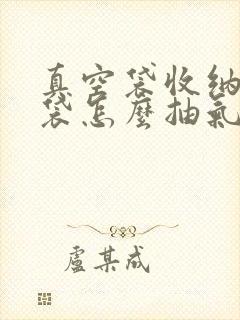 真空袋收纳
袋怎麼抽氣
盧某成